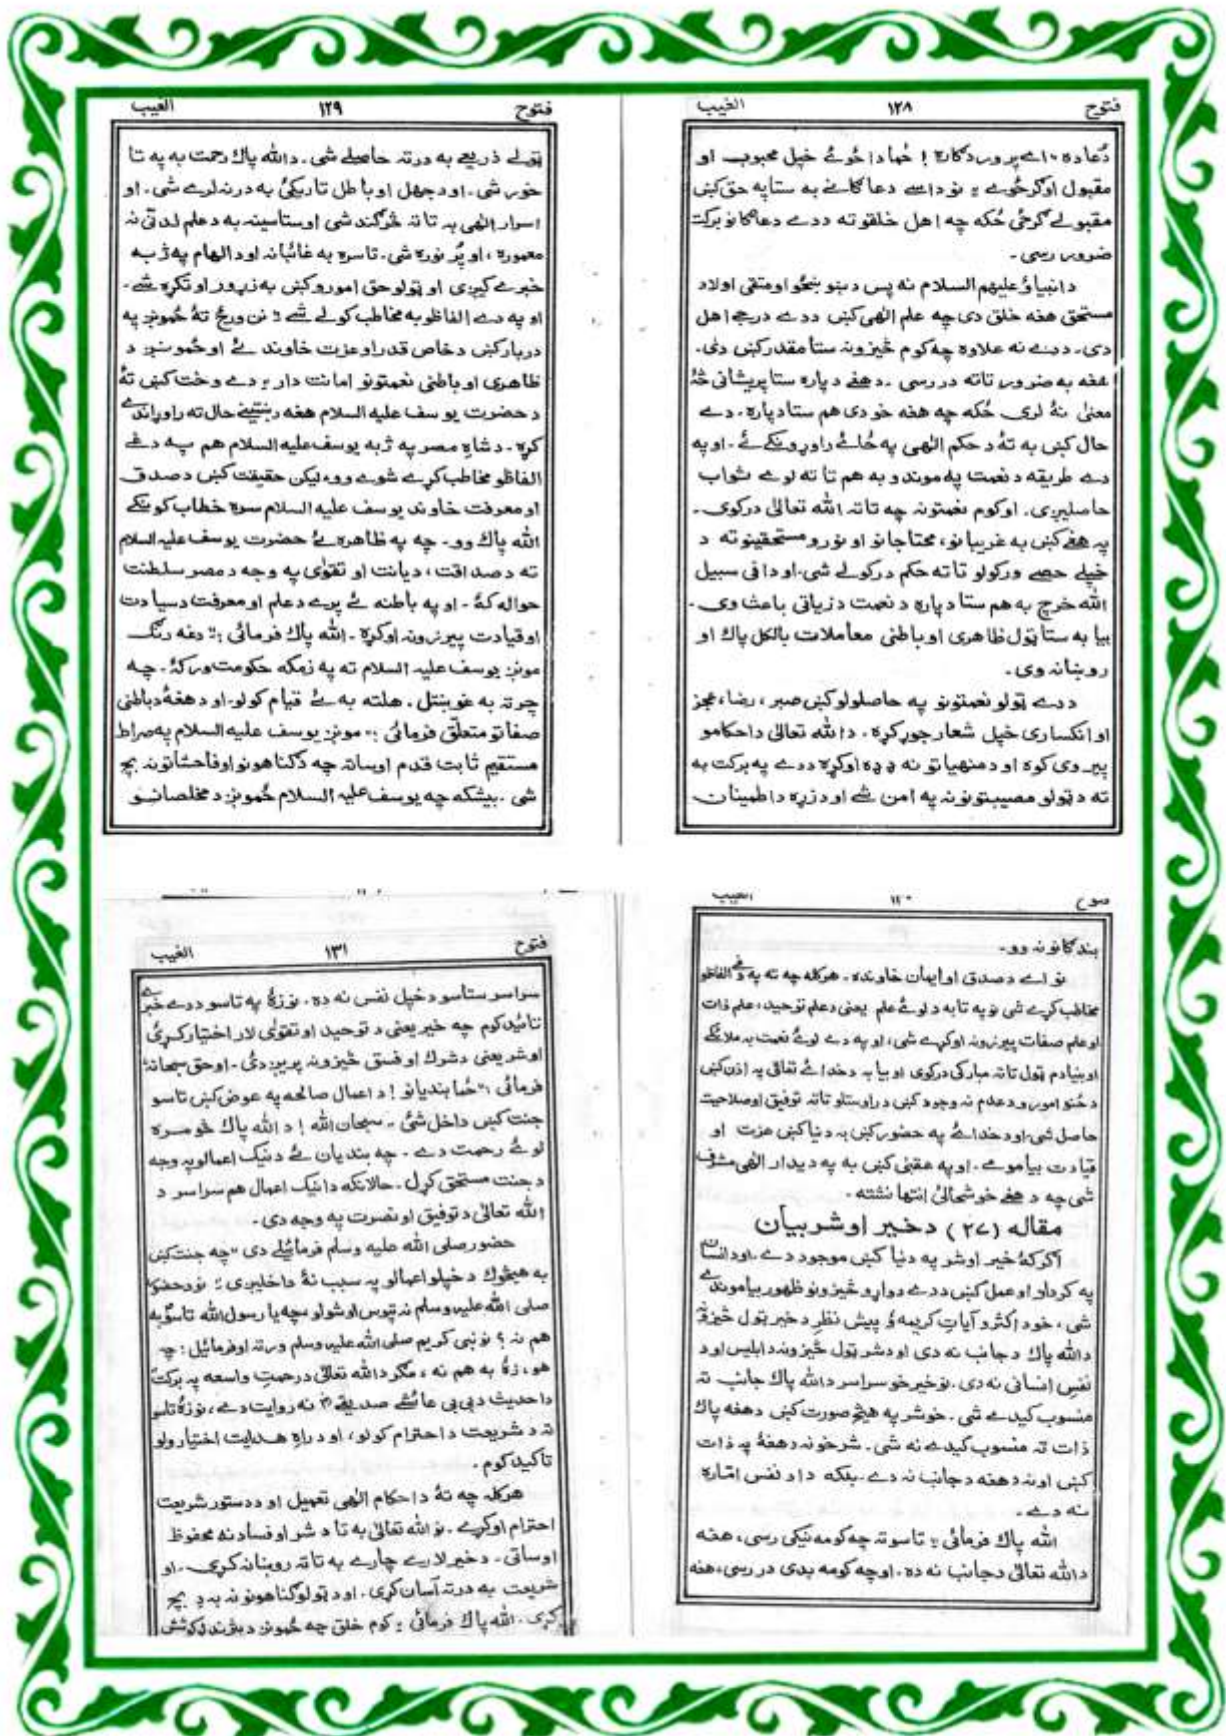 فتوح ۱۲۸ الغیب
دُعا ده ۰۰ اے پروردګاره ! ځما دا ځوئے خپل محبوب او
مقبول اوګرځوے ؛ نو داسے دعاګانے به ستا په حق کښ
مقبولے ګرځی ځکه چه اهل خلقو ته ددے دعاګانو برکت
ضرور رسی ـ
دانبیاؤ علیهم السلام نه پس د ښو ښځو او متقی اولاد
مستحق هغه خلق دی چه علم الٰهی کښ ددے درجے اهل
دی ـ ددے نه علاوه چه کوم څیزونه ستا مقدر کښ دی ـ
هغه به ضرور تا ته در رسی ـ دهغے دپاره ستا پریشانی څه
معنیٰ نهٔ لری ځکه چه هغه خو دی هم ستا دپاره ـ دے
حال کښ به تهٔ د حکم الٰهی په ځائے راوړونکے ئے ـ او په
دے طریقه د نعمت په موندو به هم تا ته لوے ثواب
حاصلیږی ـ او کوم نعمتونه چه تا ته الله تعالیٰ درکوی ـ
په هغے کښ به غریبانو، محتاجانو او نورو مستحقینو ته د
خپلے حصے ورکولو تا ته حکم درکولے شی ـ او دا فی سبیل
الله خرچ به هم ستا دپاره د نعمت د زیاتی باعث وی ـ
بیا به ستا ټول ظاهری او باطنی معاملات بالکل پاک او
روښانه وی ـ
ددے ټولو نعمتونو په حاصلولو کښ صبر، رضا، عجز
او انکساری خپل شعار جوړ کړه ـ د الله تعالیٰ د احکامو
پیروی کوه او د منهیاتو نه ډډه اوکړه ددے په برکت به
ته د ټولو مصیبتونو نه په امن شے او د زړه د اطمینان
فتوح ۱۲۹ الغیب
ټولے ذریعے به درته حاصلے شی ـ د الله پاک رحمت به په تا
خور شی ـ او د جهل او باطل تاریکیٔ به درنه لرے شی ـ او
اسرار الٰهی به تا ته څرګند شی او ستا سینه به د علم لدنّی نه
معموره ، او پُر نوره شی ـ تا سره به غائبانه او د الهام په ژبه
خبرے کیږی او ټولو حق امورو کښ به زړور او تکړه شے ـ
او په دے الفاظو به مخاطب کولے شے : نن ورځ تهٔ ځمونږ په
دربار کښ د خاص قدر او عزت خاوند ئے او ځمونږ د
ظاهری او باطنی نعمتونو امانت دار ؛ دے وخت کښ تهٔ
د حضرت یوسف علیه السلام هغه رښتینے حال ته راوړاندے
کړه ـ د شاهِ مصر په ژبه یوسف علیه السلام هم په دغے
الفاظو مخاطب کړے شوے وو، لیکن حقیقت کښ د صدق
او معرفت خاوند یوسف علیه السلام سره خطاب کوونکے
الله پاک وو ـ چه په ظاهره ئے حضرت یوسف علیه السلام
ته د صداقت ، دیانت او تقوٰی په وجه د مصر سلطنت
حواله کهٔ ـ او په باطنه ئے پرے د علم او معرفت د سیادت
او قیادت پیرزونه اوکړه ـ الله پاک فرمائی :" دغه رنګ
مونږ یوسف علیه السلام ته په زمکه حکومت ورکهٔ ـ چه
چرته به غوښتل ـ هلته به ئے قیام کولو ـ او د هغهٔ د باطنی
صفاتو متعلّق فرمائی :" مونږ یوسف علیه السلام په صراط
مستقیم ثابت قدم اوساته چه د ګناهونو او فاحشاتو نه بچ
شی ـ بیشکه چه یوسف علیه السلام ځمونږ د مخلصانو
الغیب
بندګانو نه وو ـ
نو اے د صدق او ایمان خاونده ـ هرکله چه ته په دغے الفاظو
مخاطب کړے شی نو په تا به د لوئے علم یعنی د علم توحید، علم ذات
او علم صفات پیرزونه اوکړے شی ، او په دے لوئے نعمت به ملائکے
او بنیادم ټول تا ته مبارکی درکوی او بیا به د خدائے تعالیٰ په اذن کښ
د ځنو امورو د عدم نه وجود کښ د راوستلو تا ته توفیق او صلاحیت
حاصل شی ـ او د خدائے په حضور کښ به دنیا کښ عزت او
قیادت بیامومے ـ او په عقبیٰ کښ به په دیدار الٰهی مشرف
شی چه د هغے خوشحالئ انتها نشته ـ
مقاله (۲۷) د خیر او شر بیان
اګرکهٔ خیر او شر په دنیا کښ موجود دے ـ او د انسان
په کردار او عمل کښ ددے دواړو څیزونو ظهور بیاموندے
شی ، خو د اکثرو آیاتِ کریمه ؤ پیش نظر د خیر ټول څیزونه
د الله پاک د جانب نه دی او د شر ټول څیزونه د ابلیس او د
نفسِ انسانی نه دی ـ نو خیر خو سراسر د الله پاک جانب ته
منسوب کیدے شی ـ خو شر په هیڅ صورت کښ د هغه پاک
ذات ته منسوب کیدے نه شی ـ شر خو نه د هغهٔ په ذات
کښ او نه د هغه د جانب نه دے ـ بلکه دا د نفس امّاره
نه دے ـ
الله پاک فرمائی : تاسو ته چه کومه نیکی رسی ، هغه
د الله تعالیٰ د جانب نه ده ـ او چه کومه بدی در رسی ، هغه
فتوح ۱۳۱ الغیب
سراسر ستاسو د خپل نفس نه ده ـ نو زهٔ په تاسو ددے خبرے
تائید کوم چه خیر یعنی د توحید او تقوٰی لار اختیار کړئ
او شر یعنی د شرک او فسق څیزونه پریږدئ ـ او حق سبحانهٗ
فرمائی :" ځما بندیانو ! د اعمال صالحه په عوض کښ تاسو
جنت کښ داخل شئ ـ سبحان الله ! د الله پاک څومره
لوئے رحمت دے ـ چه بندیان ئے د نیک اعمالو په وجه
د جنت مستحق کړل ـ حالانکه دا نیک اعمال هم سراسر د
الله تعالیٰ د توفیق او نصرت په وجه دی ـ
حضور صلی الله علیه وسلم فرمائیلے دی " چه جنت کښ
به هیڅوک د خپلو اعمالو په سبب نهٔ داخلیږی : نو د حضور
صلی الله علیه وسلم نه تپوس اوشولو چه یا رسول الله تاسو به
هم نه ؟ نو نبی کریم صلی الله علیه وسلم ورته اوفرمائیل : چه
هو، زهٔ به هم نه ، مګر د الله تعالیٰ د رحمتِ واسعه په برکت
دا حدیث د بی بی عائشے صدیقے رض نه روایت دے ، نو زهٔ تاسو
ته د شریعت د احترام کولو، او د راهِ هدایت اختیارولو
تاکید کوم ـ
هرکله چه تهٔ د احکام الٰهی تعمیل او د دستور شریعت
احترام اوکړے ـ نو الله تعالیٰ به تا د شر او فساد نه محفوظ
اوساتی ـ د خیر لارے چارے به تا ته روښانه کړی ـ او
شریعت به درته آسان کړی ـ او د ټولو ګناهونو نه به دِ بچ
کړی ـ الله پاک فرمائی : کوم خلق چه ځمونږ د پیژندګلو کوشش